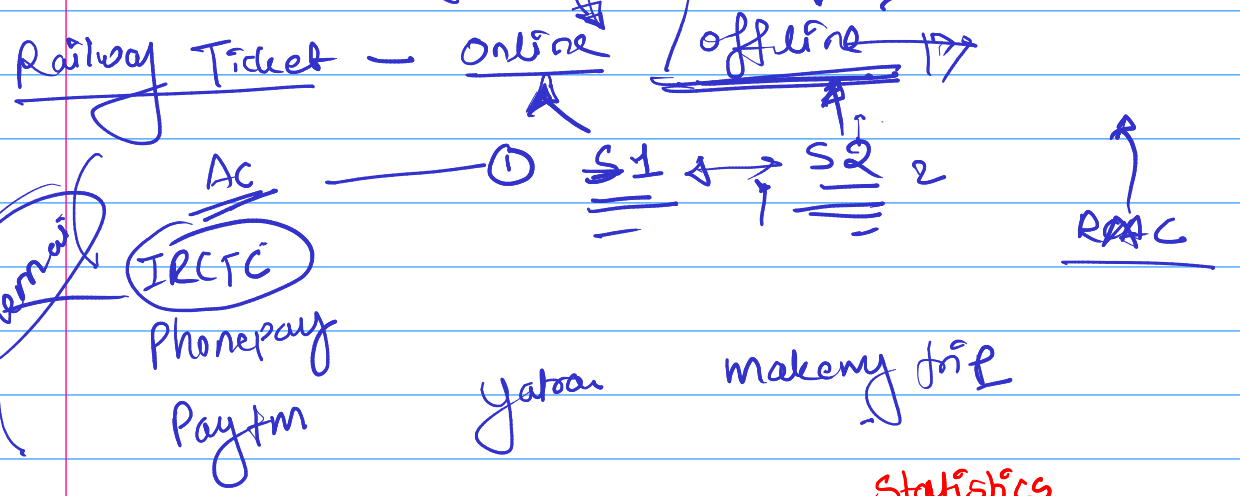 Railway Ticket - Online / Offline
AC ① S1 S2 2
RAC
IRCTC
Phonepay
Yatra makemy trip
Paytm
Statistics